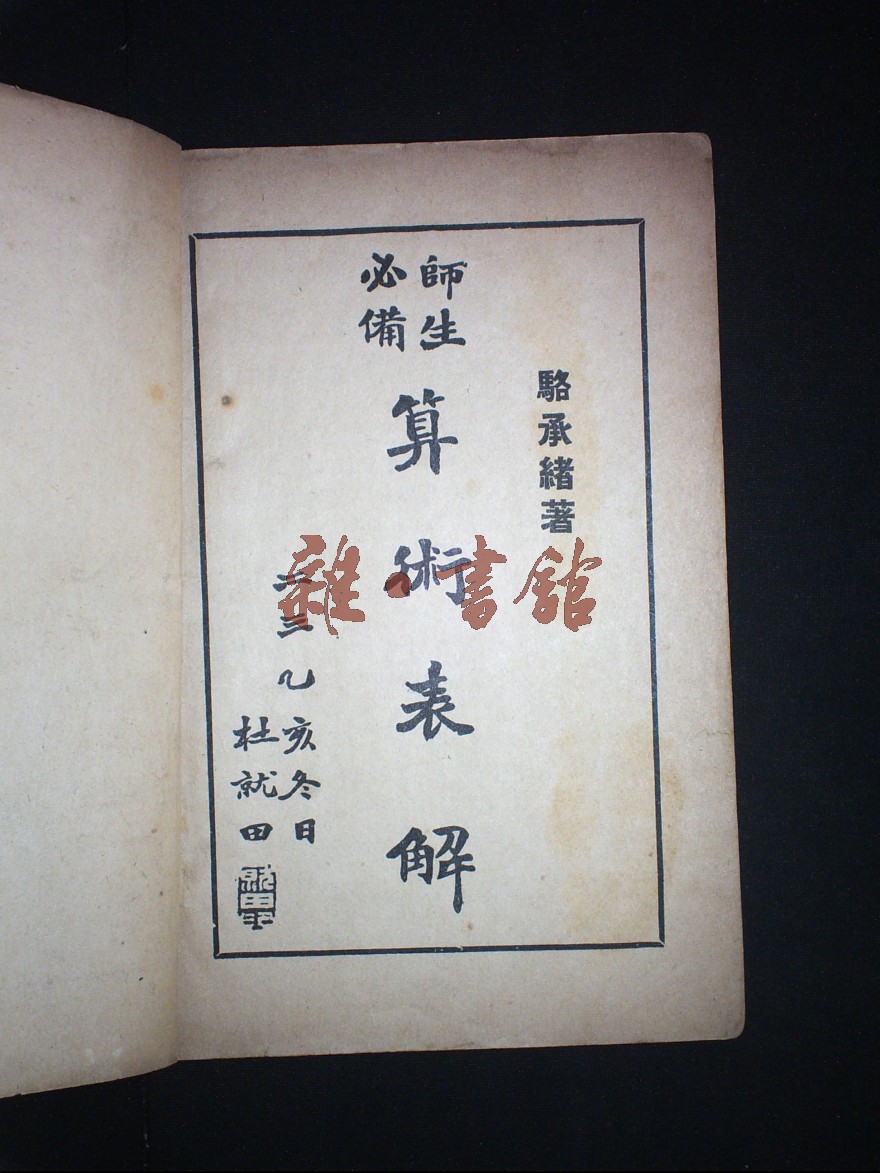 駱承緒著
師生
必備
算術表解
乙亥冬日
杜就田
雜·書館